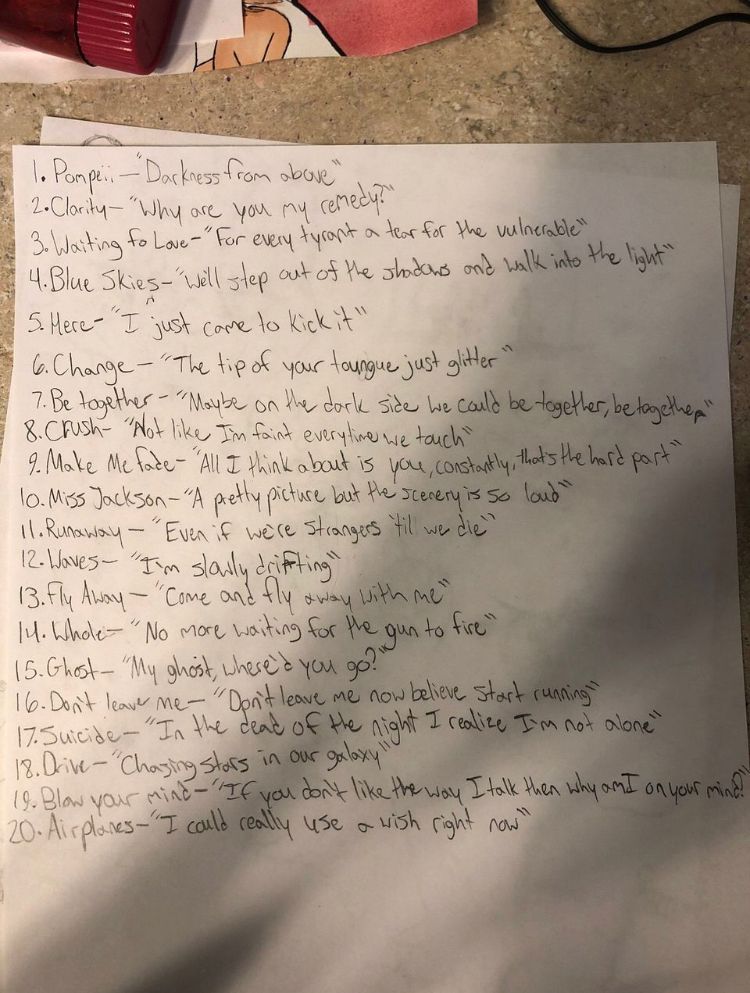 1. Pompeii - "Darkness from above"
2. Clarity - "Why are you my remedy?"
3. Waiting fo Love - "For every tyrant a tear for the vulnerable"
4. Blue Skies - "We'll step out of the shadows and walk into the light"
5. Here - "I just came to kick it"
6. Change - "The tip of your toungue just glitter"
7. Be together - "Maybe on the dark side we could be together, be together"
8. Crush - "Not like I'm faint everytime we touch"
9. Make Me fade - "All I think about is you, constantly, that's the hard part"
10. Miss Jackson - "A pretty picture but the scenery is so loud"
11. Runaway - "Even if we're strangers 'til we die"
12. Waves - "I'm slowly drifting"
13. Fly Away - "Come and fly away with me"
14. Whole - "No more waiting for the gun to fire"
15. Ghost - "My ghost, where'd you go?"
16. Don't leave me - "Don't leave me now believe start running"
17. Suicide - "In the dead of the night I realize I'm not alone"
18. Drive - "Chasing stars in our galaxy"
19. Blow your mind - "If you don't like the way I talk then why am I on your mind?"
20. Airplanes - "I could really use a wish right now"